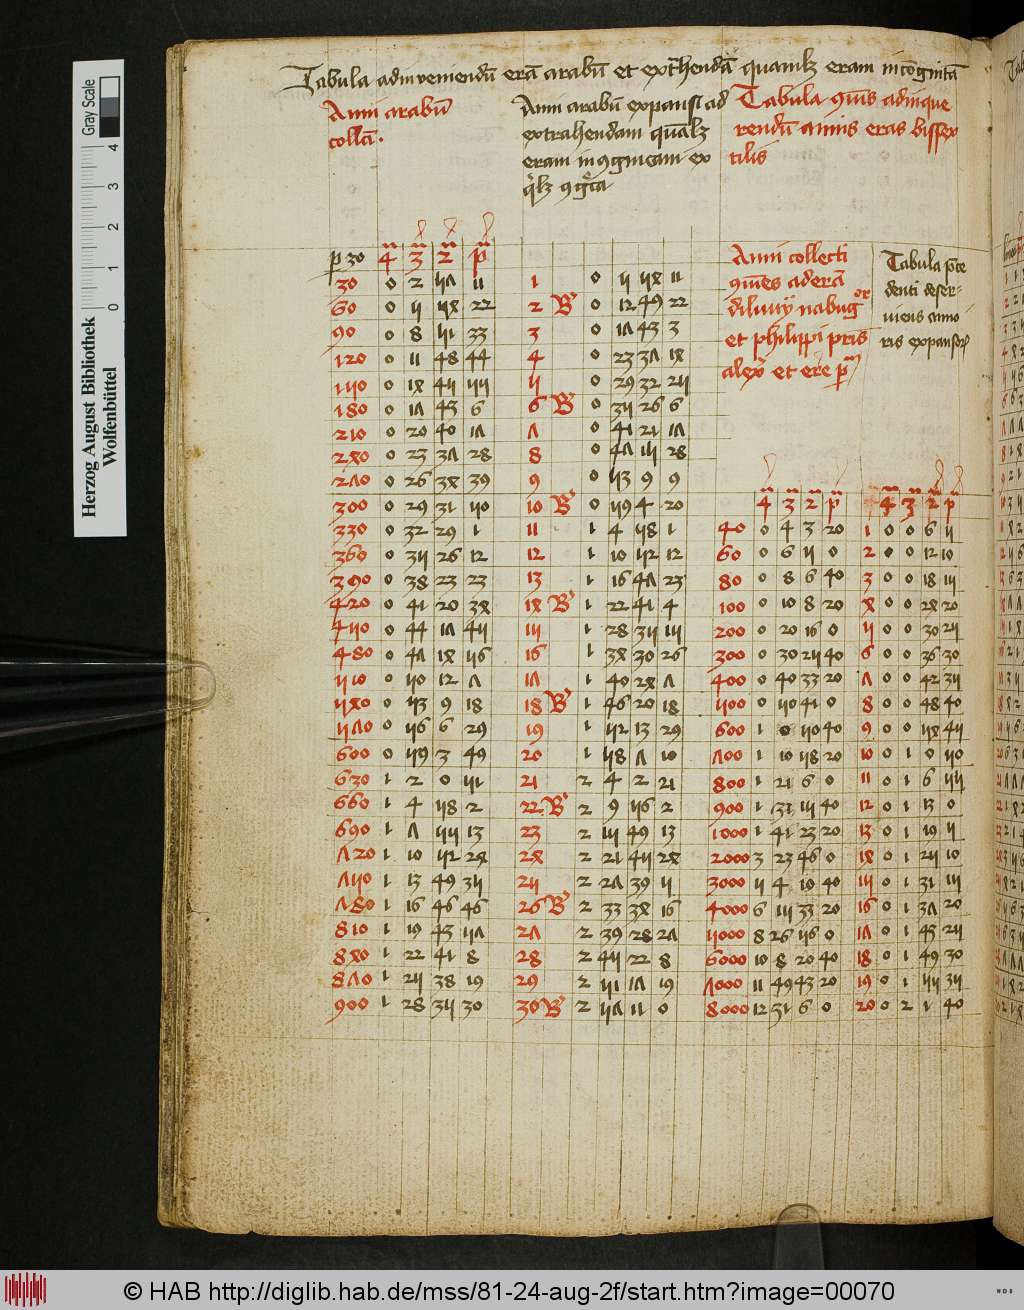 Tabula adinveniendū erā arabū et extrhendā quamlz eram incōgnitā
Anni arabū
collcā.
Anni arabū expansi ad
extrahendam qualz
eram in 9gnicam ex
qͣlz 9gͥta
Tabula 9uis adinque
rendū annis eras bissex
tilis
Anni collecti
9uies ad erā
diluvij nabug or
et philippi pris
alexͥ et ere pͫ
Tabula pͨte
denti deser-
viens anno
ris expansoꝝ
p 30 4 3 2 p
30 0 2 57 11 1 0 5 54 11
60 0 5 54 22 2 B 0 12 49 22
90 0 8 51 33 3 0 17 43 3
120 0 11 48 44 4 0 23 37 14
150 0 14 45 55 5 0 29 32 25
180 0 17 43 6 6 B 0 35 26 6
210 0 20 40 17 7 0 41 21 17
240 0 23 37 28 8 0 47 15 28
270 0 26 34 39 9 0 53 9 9
300 0 29 31 50 10 B 0 59 4 20 4 3 2 p 4 3 2 p
330 0 32 29 1 11 1 4 58 1 40 0 4 3 20 1 0 0 6 5
360 0 35 26 12 12 1 10 52 12 60 0 6 5 0 2 0 0 12 10
390 0 38 23 23 13 1 16 47 23 80 0 8 6 40 3 0 0 18 15
420 0 41 20 34 14 B 1 22 41 4 100 0 10 8 20 4 0 0 24 20
450 0 44 17 45 15 1 28 35 15 200 0 20 16 0 5 0 0 30 25
480 0 47 14 56 16 1 34 30 26 300 0 30 25 40 6 0 0 36 30
510 0 50 12 7 17 1 40 24 7 400 0 40 33 20 7 0 0 42 35
540 0 53 9 18 18 B 1 46 20 18 500 0 50 41 0 8 0 0 48 40
570 0 56 6 29 19 1 52 13 29 600 1 0 50 40 9 0 0 54 45
600 0 59 3 49 20 1 58 7 10 700 1 10 58 20 10 0 1 0 50
630 1 2 0 51 21 2 4 2 21 800 1 21 6 0 11 0 1 6 55
660 1 4 58 2 22 B 2 9 56 2 900 1 31 15 40 12 0 1 13 0
690 1 7 55 13 23 2 15 49 13 1000 1 41 23 20 13 0 1 19 5
720 1 10 52 24 24 2 21 45 24 2000 3 23 46 0 14 0 1 25 10
750 1 13 49 35 25 2 27 39 5 3000 5 4 19 40 15 0 1 31 15
780 1 16 46 46 26 B 2 33 34 16 4000 6 15 33 20 16 0 1 37 20
810 1 19 43 57 27 2 39 28 27 5000 8 26 56 0 17 0 1 43 25
840 1 22 41 8 28 2 45 22 8 6000 10 8 20 40 18 0 1 49 30
870 1 25 38 19 29 2 51 17 19 7000 11 49 43 20 19 0 1 55 35
900 1 28 35 30 30 B 2 57 11 0 8000 12 31 6 0 20 0 2 1 40
Herzog August Bibliothek
Wolfenbüttel
Gray Scale
0 1 2 3 4
© HAB http://diglib.hab.de/mss/81-24-aug-2f/start.htm?image=00070